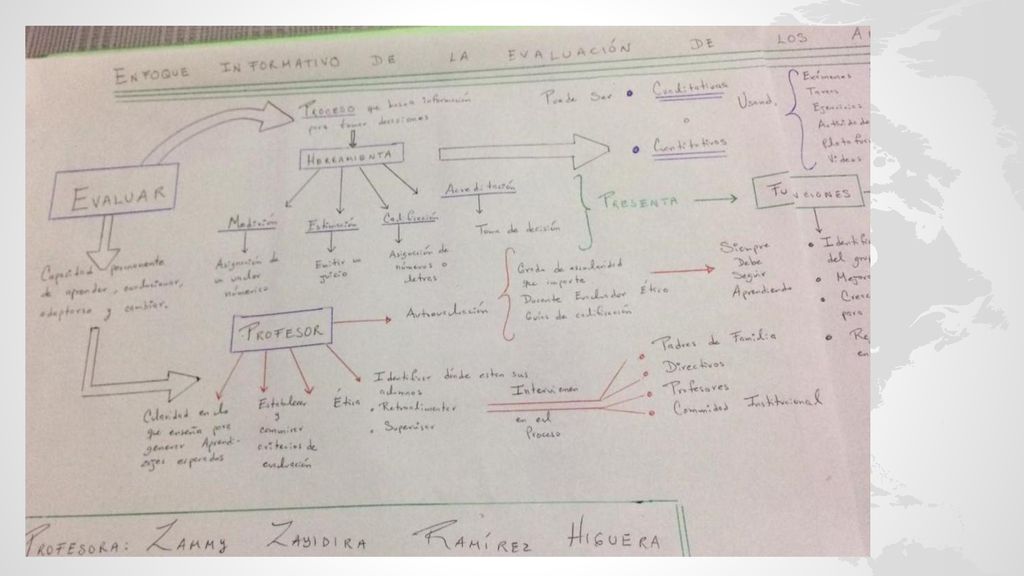 ENFOQUE INFORMATIVO DE LA EVALUACIÓN DE LOS A
EVALUAR
PROCESO que busca información
para tomar decisiones
HERRAMIENTA
Puede Ser • Cualitativas
o
• Cuantitativos
Usand.
Exámenes
Tareas
Ejercicios
Activida
Platafor
Videos
Medición
Asignación de
un valor
númerico
Estimación
Emitir un
juicio
Calificación
Asignación de
números o
letras
Acreditación
Toma de decisión
PRESENTA
FUNCIONES
• Identifi
del gru
• Mejora
• Crece
para
• Re
en
Capacidad permanente
de aprender, evolucionar,
adaptarse y cambiar.
PROFESOR
Autoevaluación
Grado de escolaridad
que imparte
Docente Evaluador Ético
Guías de calificación
Siempre
Debe
Seguir
Aprendiendo
Claridad en lo
que enseña para
generar Aprendi-
zajes esperados
Establecer
y
comunicar
criterios de
evaluación
Ética
Identificar dónde estan sus
alumnos
• Retroalimentar
• Supervisar
Intervienen
en el
Proceso
Padres de Familia
Directivos
Profesores
Comunidad Institucional
PROFESORA: ZAMMY ZAYIDIRA RAMÍREZ HIGUERA